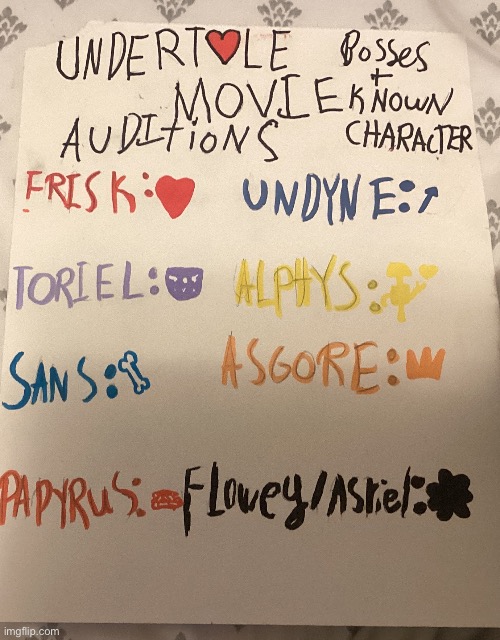 UNDERT❤LE
MOVIE
AUDITIONS
Bosses
+
KNOWN
CHARACTER
FRISK:
UNDYNE:
TORIEL:
ALPHYS:
SANS:
ASGORE:
PAPYRUS:
Flowey/Asriel:
imgflip.com